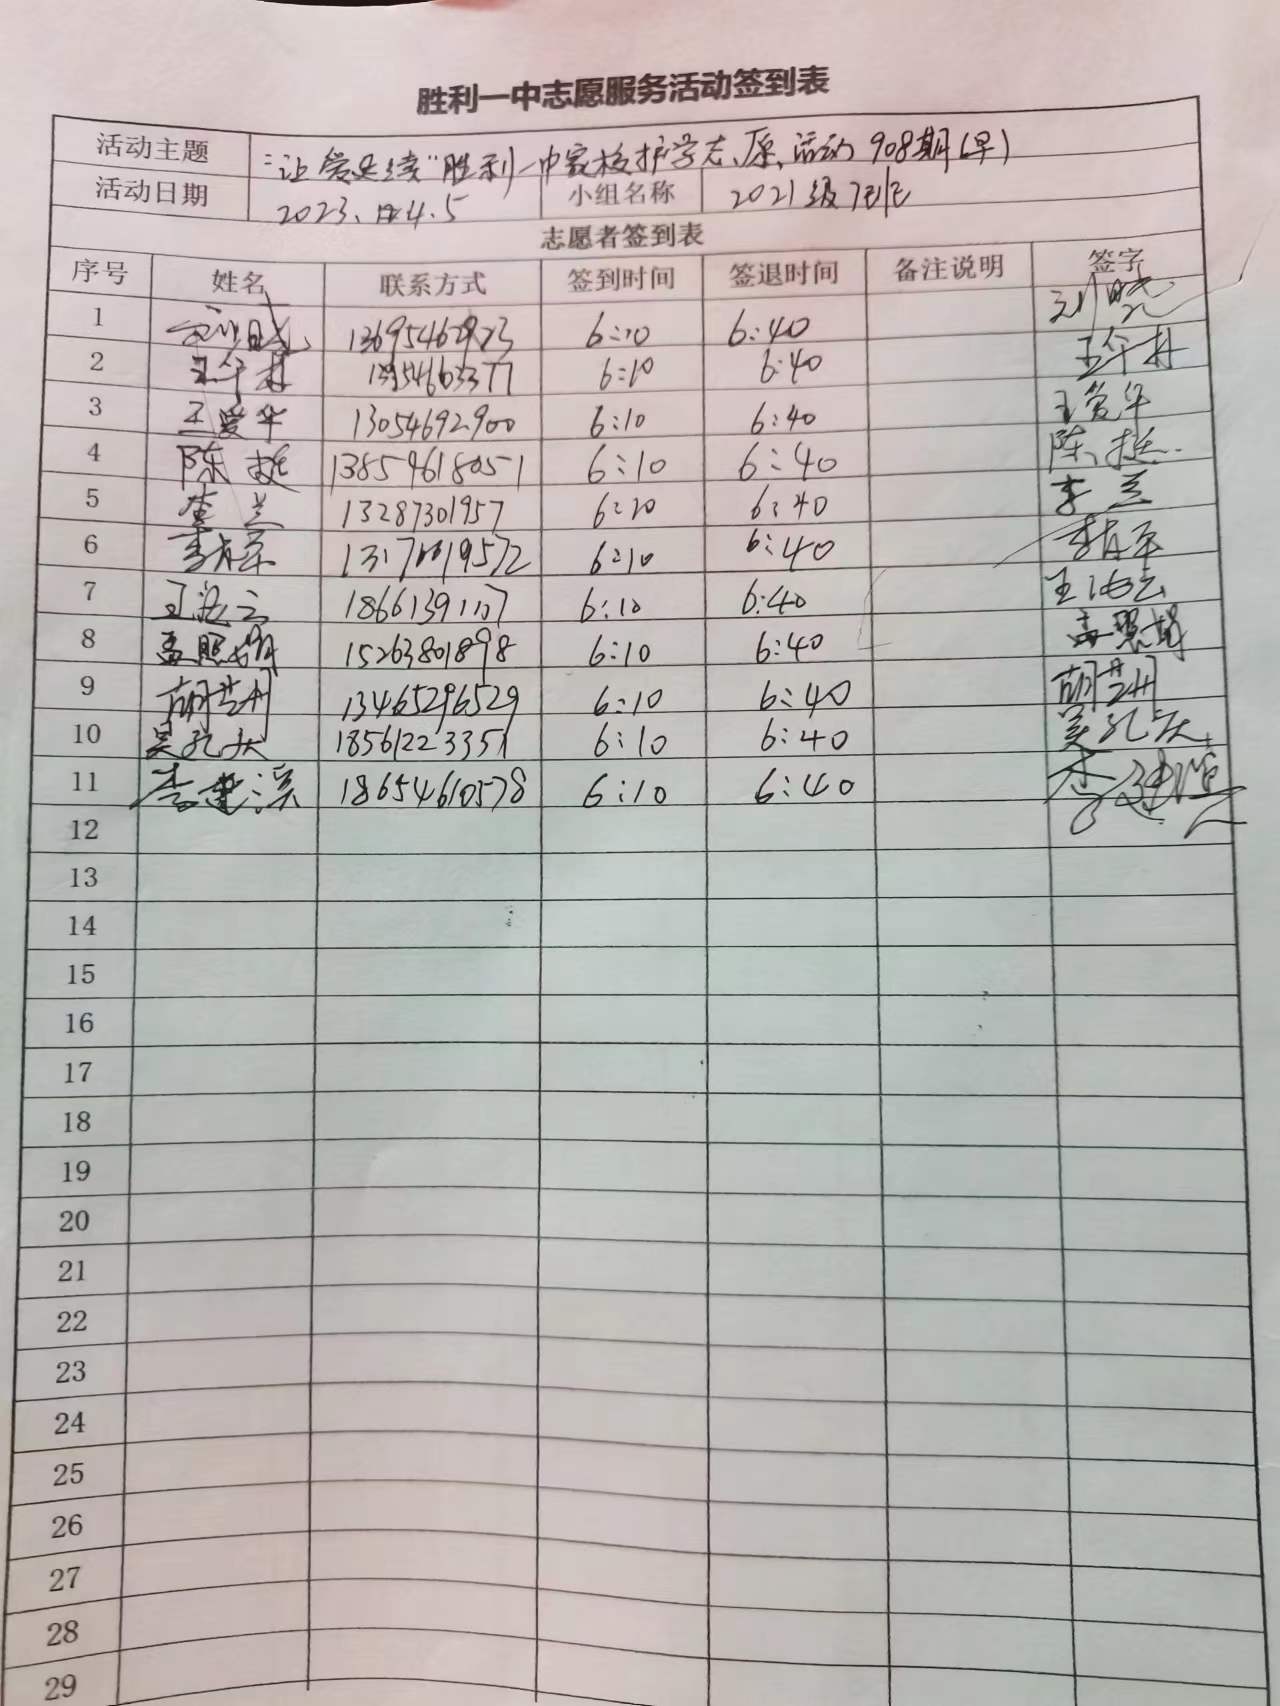 胜利一中志愿服务活动签到表
活动主题 让爱延续"胜利一中家校护学志愿活动908期(早)
活动日期 2023. 4.5 小组名称 2021级
志愿者签到表
序号 姓名 联系方式 签到时间 签退时间 备注说明 签字
1 6:10 6:40
2 6:10 6:40
3 王爱华 13054692900 6:10 6:40 王爱华
4 陈挺 13854618051 6:10 6:40 陈挺
5 李兰 13287301957 6:10 6:40 李兰
6 6:10 6:40
7 王海云 6:10 6:40 王海云
8 15263801898 6:10 6:40
9 胡芸州 13465296529 6:10 6:40 胡芸州
10 吴孔庆 18561223351 6:10 6:40 吴孔庆
11 李建滨 18654610578 6:10 6:40 李建滨
12
13
14
15
16
17
18
19
20
21
22
23
24
25
26
27
28
29